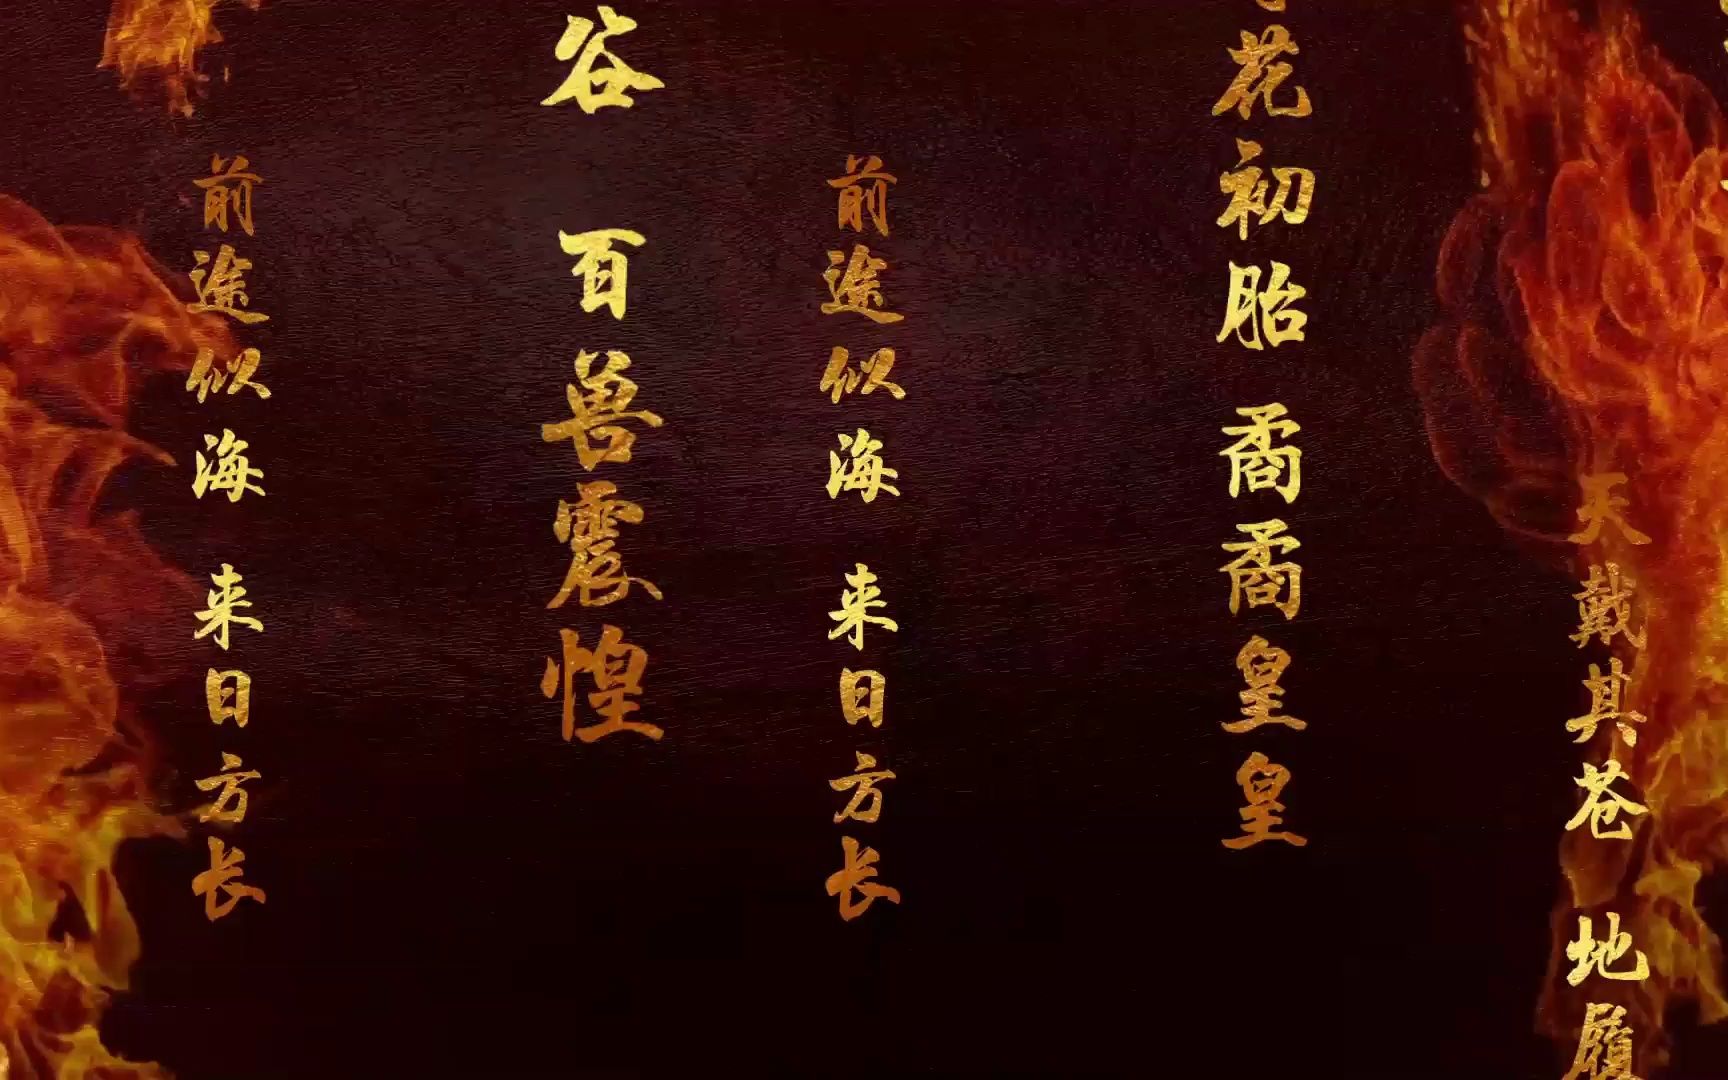 天戴其苍 地履
花初胎 矞矞皇皇
前途似海 来日方长
谷 百兽震惶
前途似海 来日方长